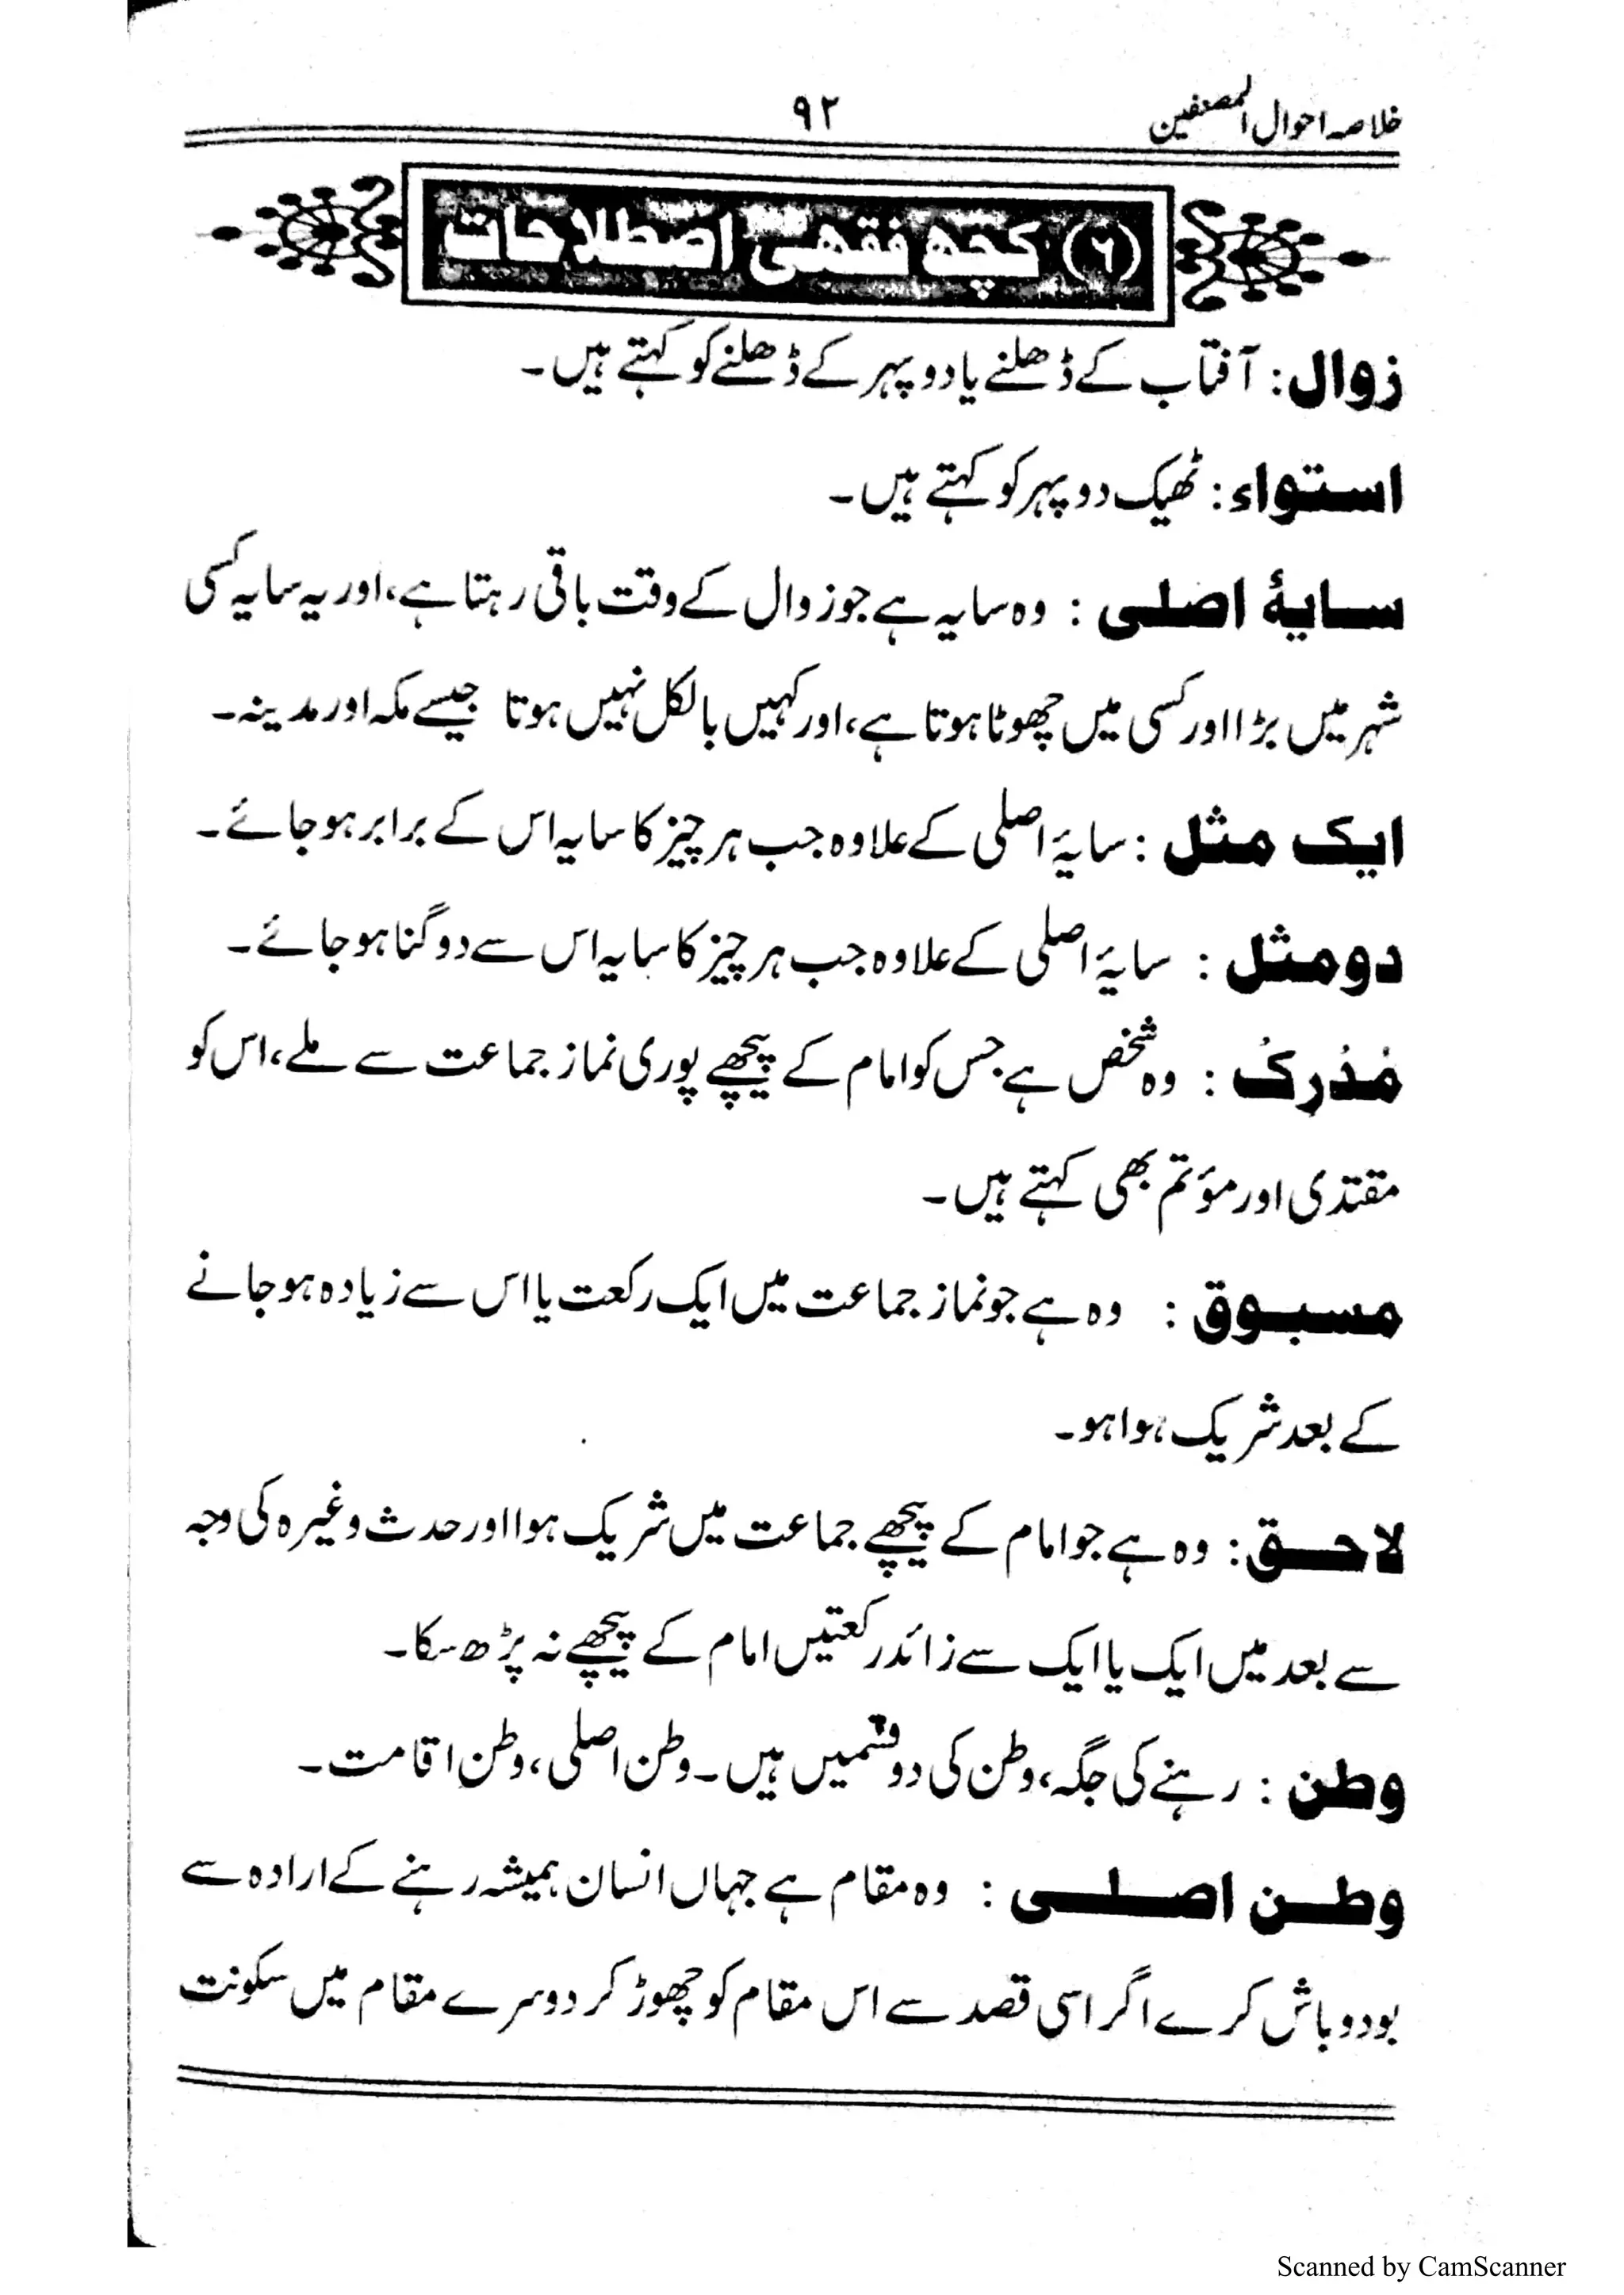 خلاصہ احوال المصنفین
۹۲
(۶) کچھ فقہی اصطلاحات
زوال: آفتاب کے ڈھلنے یا دوپہر کے ڈھلنے کو کہتے ہیں۔
استواء: ٹھیک دوپہر کو کہتے ہیں۔
سایۂ اصلی: وہ سایہ ہے جو زوال کے وقت باقی رہتا ہے، اور یہ سایہ کسی
شہر میں بڑا اور کسی میں چھوٹا ہوتا ہے، اور کہیں بالکل نہیں ہوتا جیسے مکہ اور مدینہ۔
ایک مثل: سایۂ اصلی کے علاوہ جب ہر چیز کا سایہ اس کے برابر ہو جائے۔
دو مثل: سایۂ اصلی کے علاوہ جب ہر چیز کا سایہ اس سے دو گنا ہو جائے۔
مُدْرِکْ: وہ شخص ہے جس کو امام کے پیچھے پوری نماز جماعت سے ملے، اس کو
مقتدی اور مؤتم بھی کہتے ہیں۔
مسبوق: وہ ہے جو نماز جماعت میں ایک رکعت یا اس سے زیادہ ہو جانے
کے بعد شریک ہوا ہو۔
لاحق: وہ ہے جو امام کے پیچھے جماعت میں شریک ہوا اور حدث وغیرہ کی وجہ
سے بعد میں ایک یا ایک سے زائد رکعتیں امام کے پیچھے نہ پڑھ سکا۔
وطن: رہنے کی جگہ، وطن کی دو قسمیں ہیں۔ وطن اصلی، وطن اقامت۔
وطن اصلی: وہ مقام ہے جہاں انسان ہمیشہ رہنے کے ارادہ سے
بود و باش کرے اگر اسی قصد سے اس مقام کو چھوڑ کر دوسرے مقام میں سکونت
Scanned by CamScanner